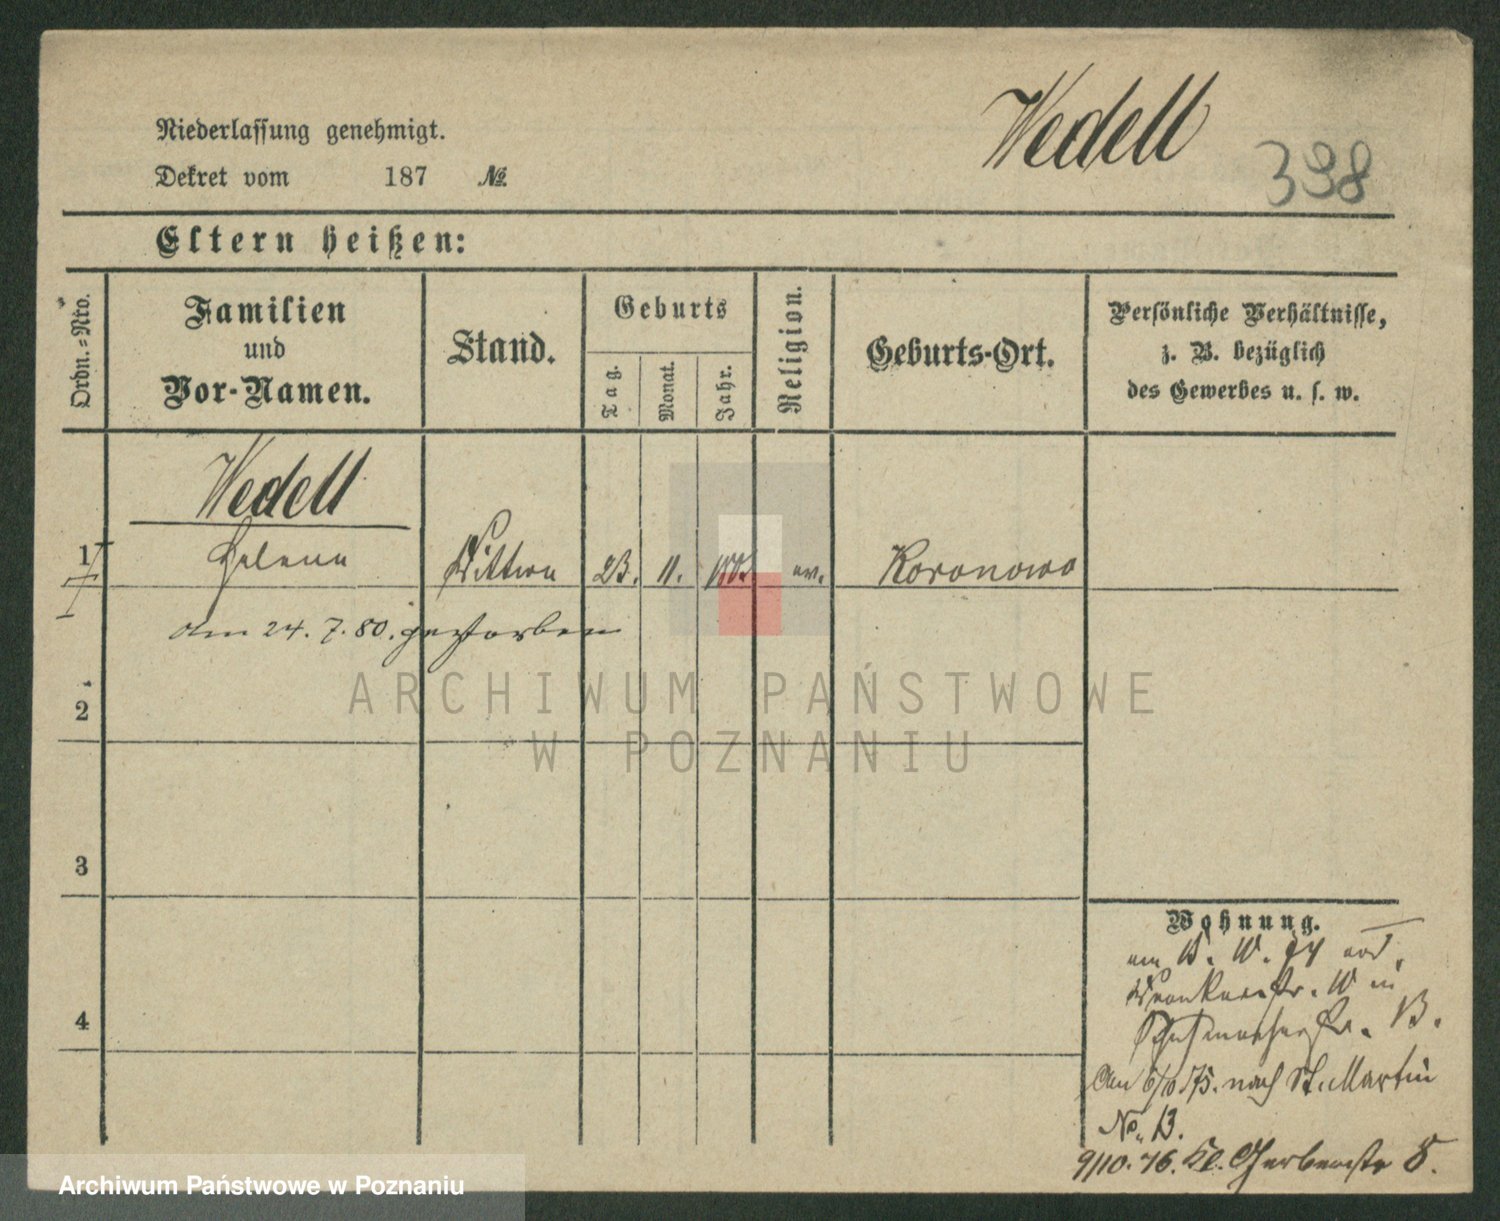 Wedell
398
Niederlassung genehmigt.
Dekret vom 187 №
Eltern heißen:
Ordn.=Nro.
Familien
und
Vor-Namen.
Stand.
Geburts
Tag.
Monat.
Jahr.
Religion.
Geburts-Ort.
Persönliche Verhältnisse,
z. B. bezüglich
des Gewerbes u. s. w.
Wedell
1 Helena Wittwe 23. 11. ev. Koronowo
am 24. 7. 80. gestorben
2
3
4
Wohnung.
am
in
Schuhmacherstr. 13.
Am 6/10 75. nach St. Martin
No. 13.
9/10. 76. Kl. Gerberstr 8.
ARCHIWUM PAŃSTWOWE
W POZNANIU
Archiwum Państwowe w Poznaniu